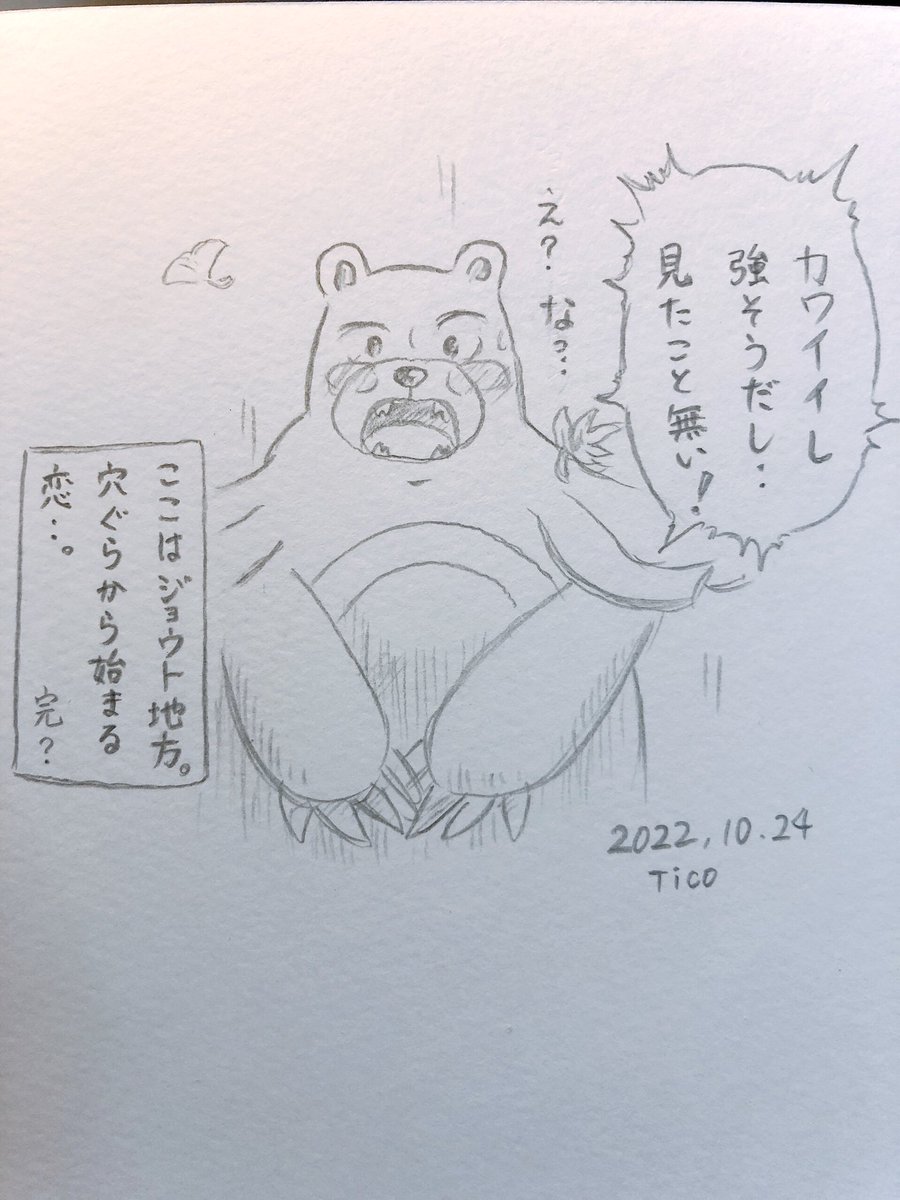 カワイイし
強そうだし‥
見たこと無い!
え?‥な?‥
ここはジョウト地方。
穴ぐらから始まる
恋‥。
完?
2022.10.24
Tico